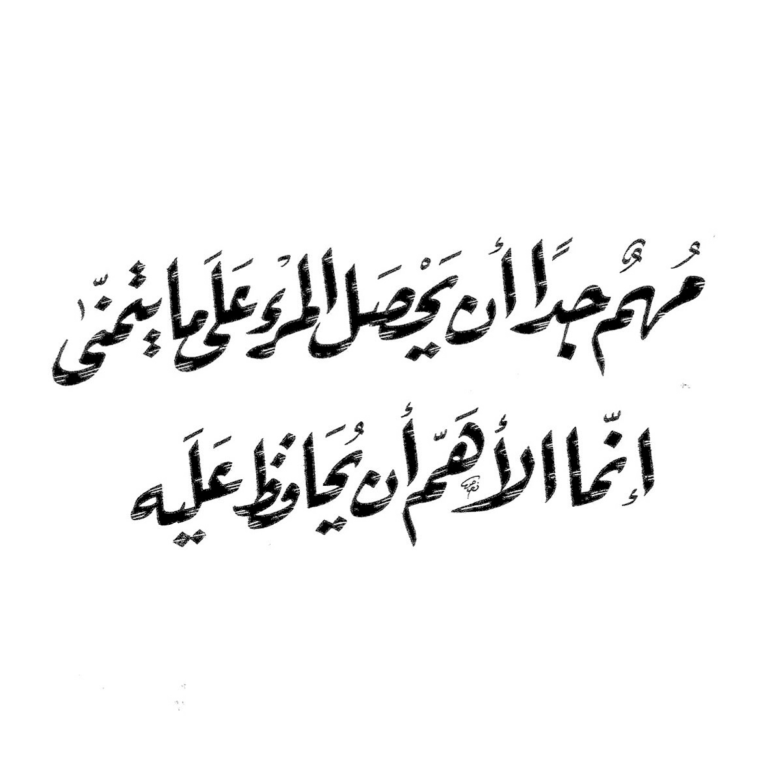 مُهمٌ جدًا أن يَحْصَل المرْء عَلَى ما يتمنّى
إنّما الأهَمّ أن يُحَافظ عَلَيه